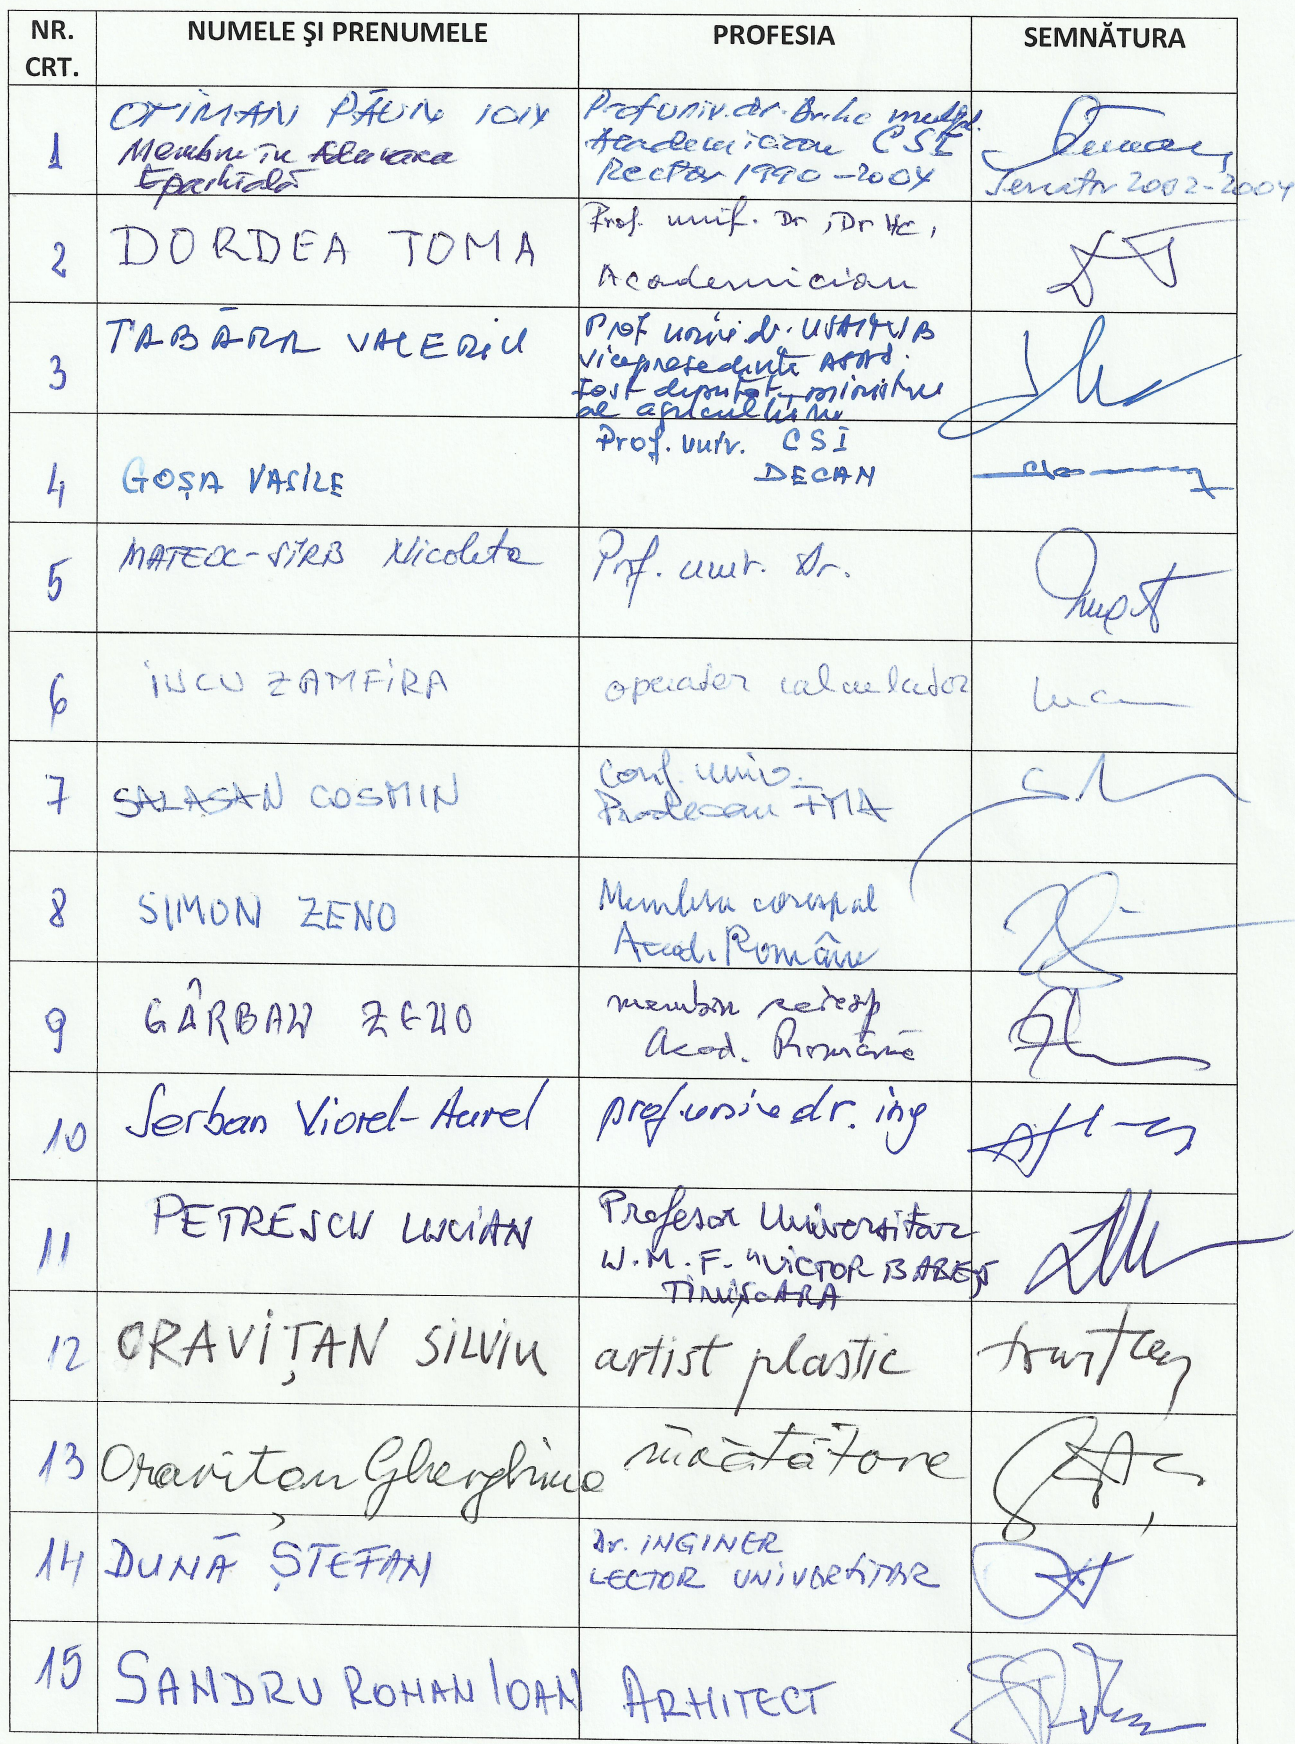 NR. CRT. NUMELE ŞI PRENUMELE PROFESIA SEMNĂTURA
1 OTIMAN PĂUN ION Prof univ. dr.
Membru în Academician CSI
Eparhială Rector 1990-2004 Senator 2002-2004
2 DORDEA TOMA Prof. univ. Dr, Dr Hc,
Academician
3 TABĂRĂ VALERIU Prof univ. dr. USAMVB
vicepreședinte ASAS.
Fost deputat, ministru
al agriculturii
4 GOȘA VASILE Prof. univ. CSI
DECAN
5 MATEOC-SÎRB Nicoleta Prof. univ. Dr.
6 INCU ZAMFIRA operator calculator
7 SALASAN COSMIN Conf. univ.
Prodecan FMA
8 SIMON ZENO Membru
Acad. Române
9 GÂRBAN ZENO membru
Acad. Română
10 Serban Viorel-Aurel prof. univ dr. ing
11 PETRESCU LUCIAN Profesor Universitar
U.M.F. "VICTOR BABEȘ
TIMIȘOARA
12 ORAVIȚAN SILVIU artist plastic
13 Oravițan Gherghina
14 DUNĂ ȘTEFAN Dr. INGINER
LECTOR UNIVERSITAR
15 SANDRU ROMAN IOAN ARHITECT